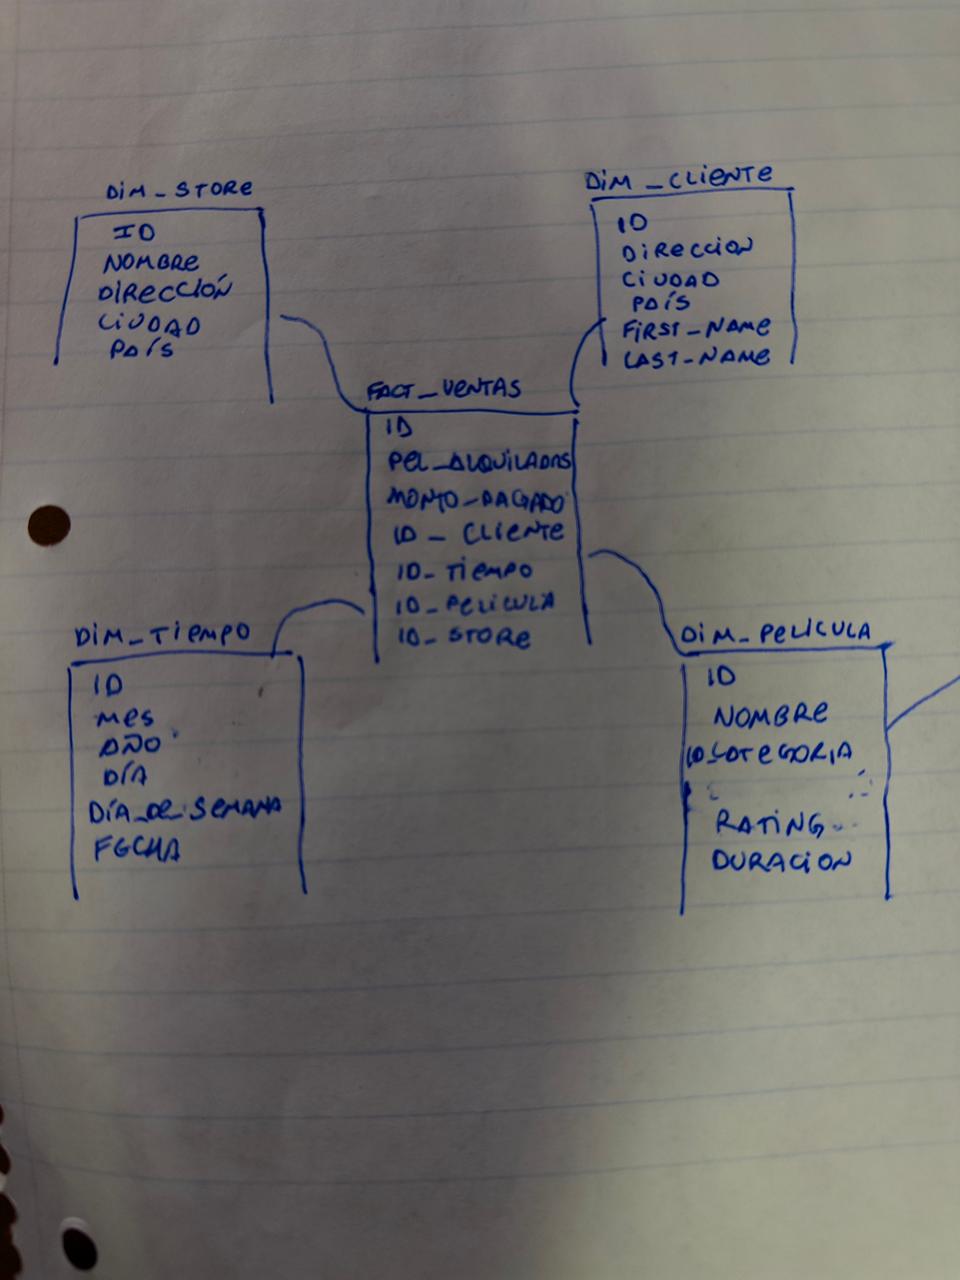 DIM_STORE
ID
NOMBRE
DIRECCIÓN
CIUDAD
PAÍS
DIM_CLIENTE
ID
DIRECCION
CIUDAD
PAÍS
FIRST_NAME
LAST_NAME
FACT_VENTAS
ID
PEL_ALQUILADAS
MONTO_PAGADO
ID_CLIENTE
ID_TIEMPO
ID_PELICULA
ID_STORE
DIM_TIEMPO
ID
MES
AÑO
DÍA
DÍA_DE_SEMANA
FECHA
DIM_PELÍCULA
ID
NOMBRE
ID_CATEGORIA
RATING
DURACION